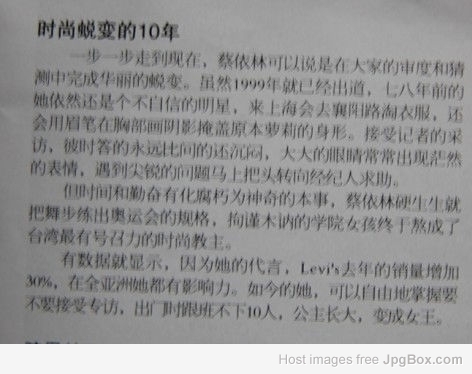 时尚蜕变的10年
一步一步走到现在，蔡依林可以说是在大家的审度和猜
测中完成华丽的蜕变。虽然1999年就已经出道，七八年前的
她依然还是个不自信的明星，来上海会去襄阳路淘衣服，还
会用眉笔在胸部画阴影掩盖原本萝莉的身形。接受记者的采
访，彼时答的永远比问的还沉闷，大大的眼睛常常出现茫然
的表情，遇到尖锐的问题马上把头转向经纪人求助。
但时间和勤奋有化腐朽为神奇的本事，蔡依林硬生生就
把舞步练出奥运会的规格，拘谨木讷的学院女孩终于熬成了
台湾最有号召力的时尚教主。
有数据就显示，因为她的代言，Levi's去年的销量增加
30%，在全亚洲她都有影响力。如今的她，可以自由地掌握要
不要接受专访，出门时跟班不下10人，公主长大，变成女王。
Host images free JpgBox.com